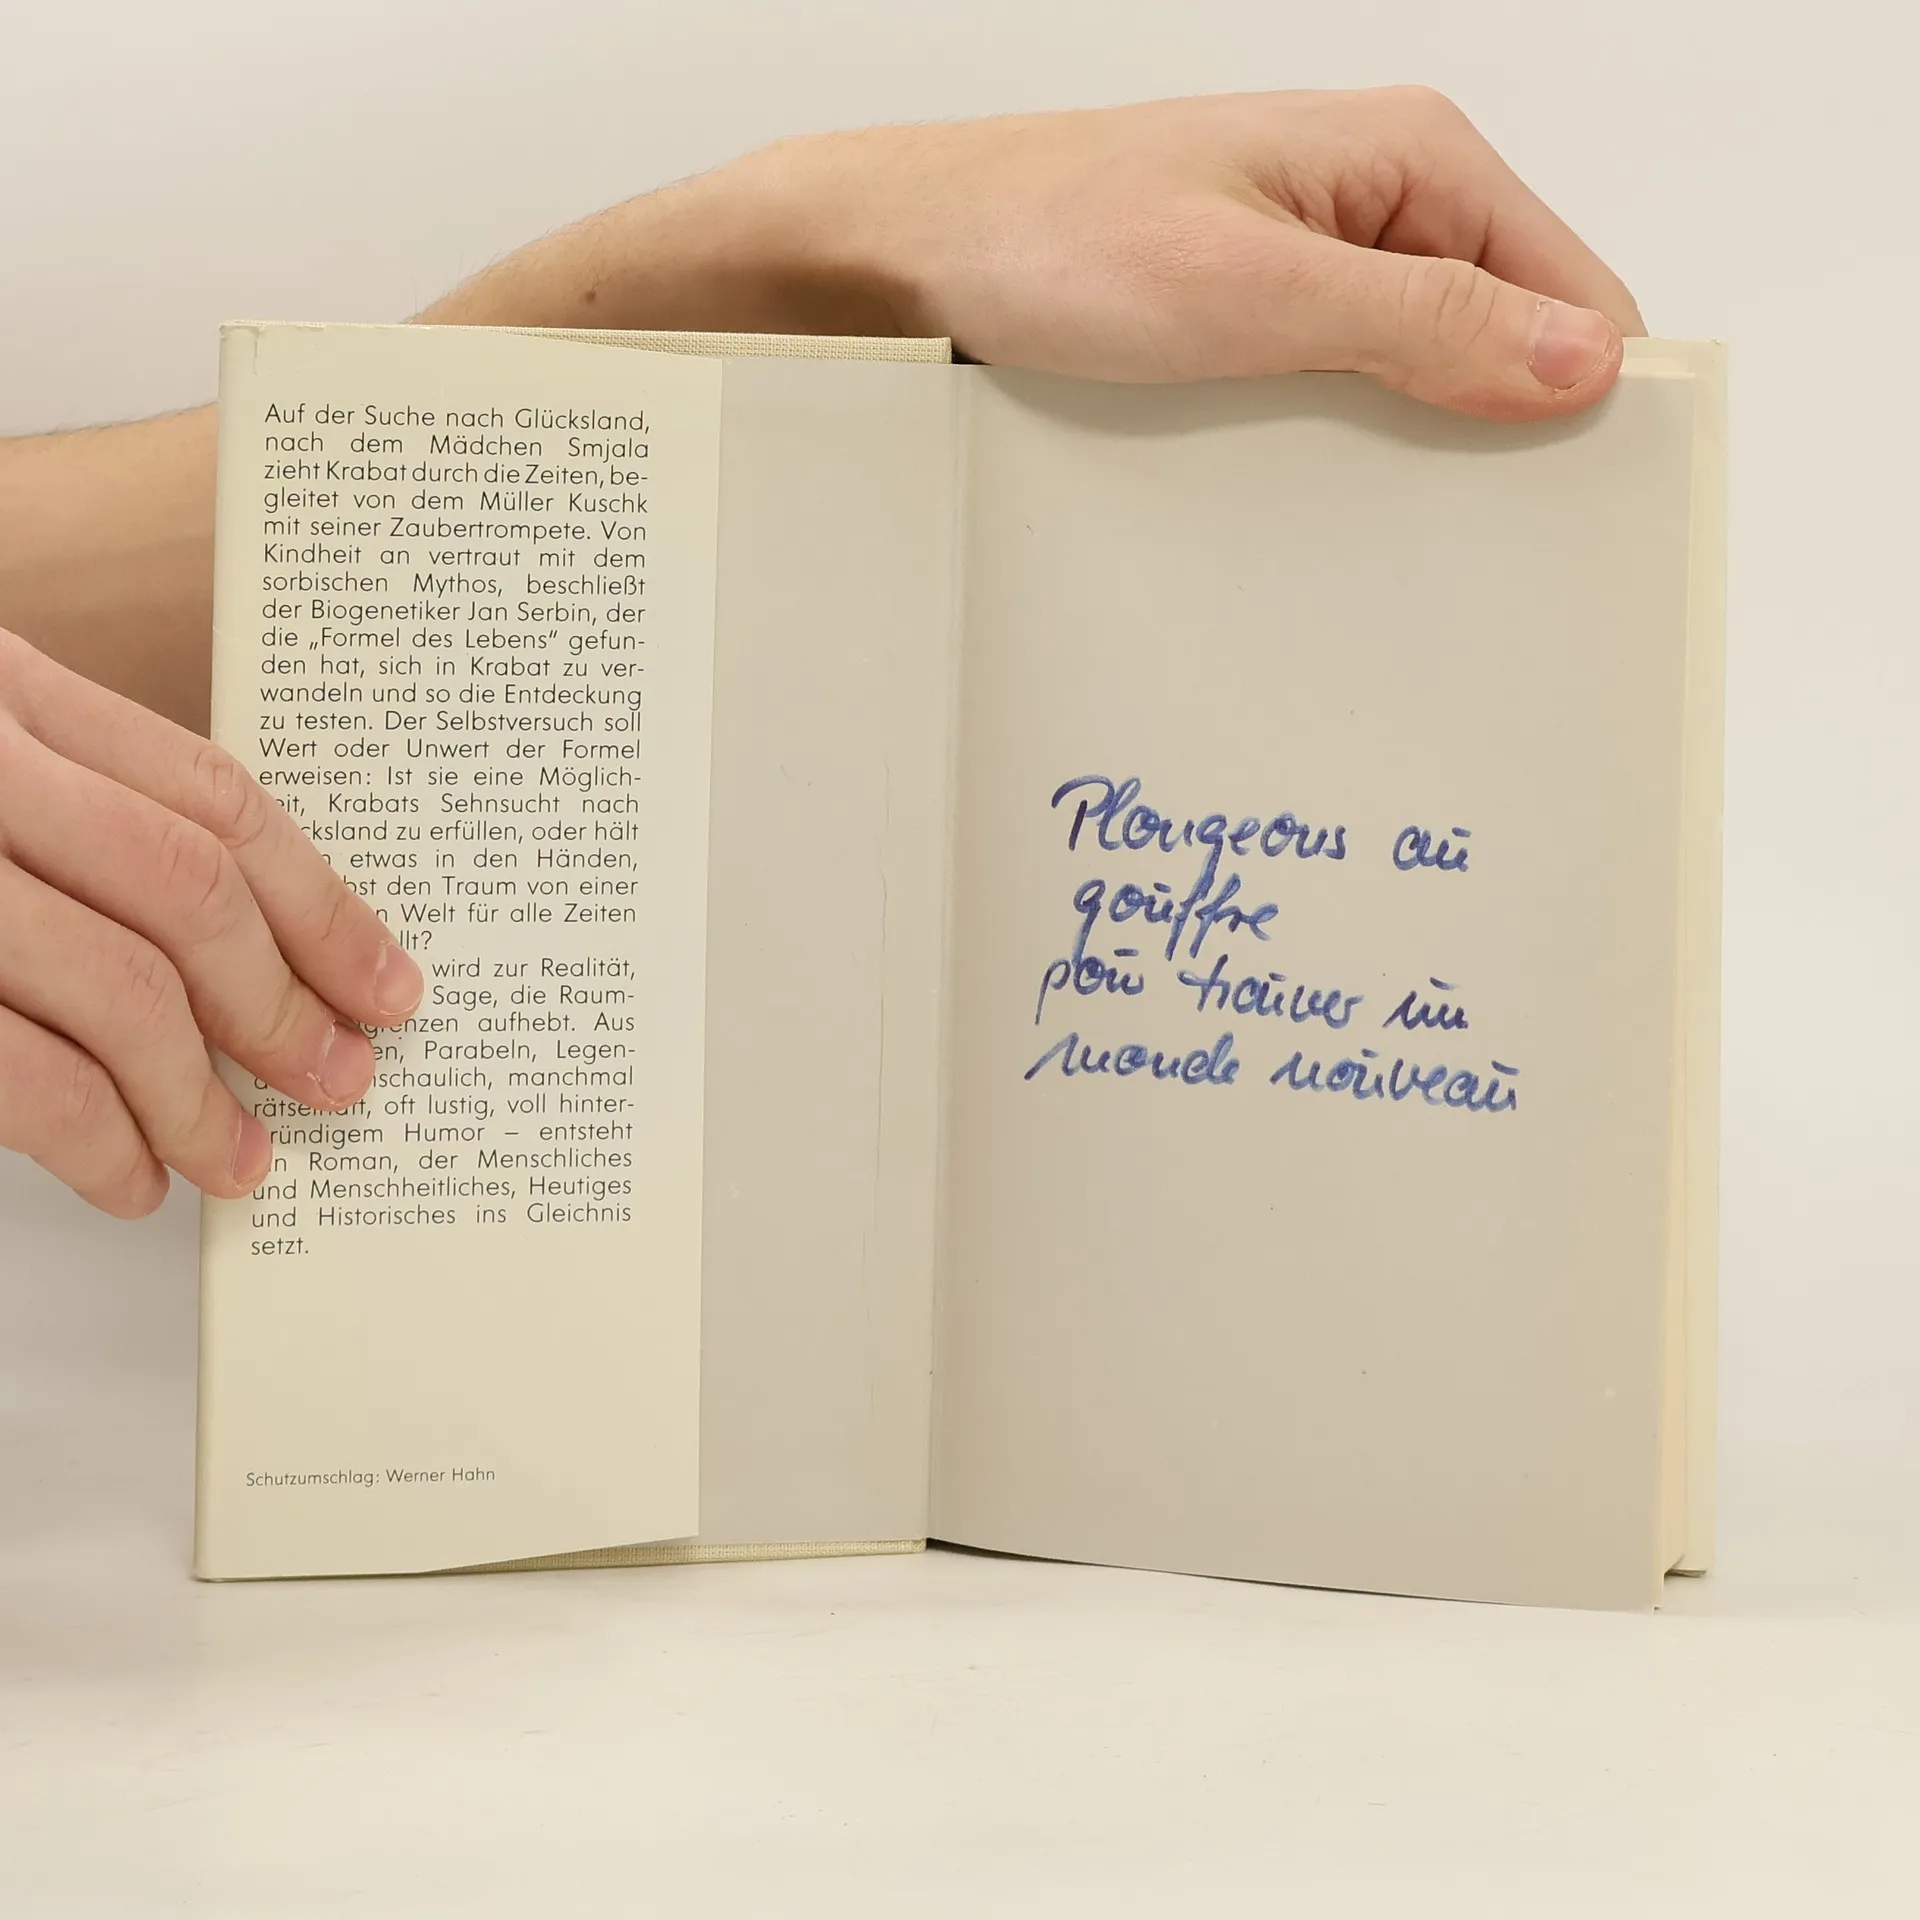 Auf der Suche nach Glücksland,
nach dem Mädchen Smjala
zieht Krabat durch die Zeiten, be-
gleitet von dem Müller Kuschk
mit seiner Zaubertrompete. Von
Kindheit an vertraut mit dem
sorbischen Mythos, beschließt
der Biogenetiker Jan Serbin, der
die „Formel des Lebens“ gefun-
den hat, sich in Krabat zu ver-
wandeln und so die Entdeckung
zu testen. Der Selbstversuch soll
Wert oder Unwert der Formel
erweisen: Ist sie eine Möglich-
eit, Krabats Sehnsucht nach
cksland zu erfüllen, oder hält
etwas in den Händen,
bst den Traum von einer
n Welt für alle Zeiten
llt?
wird zur Realität,
Sage, die Raum-
grenzen aufhebt. Aus
en, Parabeln, Legen-
schaulich, manchmal
rätselhaft, oft lustig, voll hinter-
ründigem Humor – entsteht
n Roman, der Menschliches
und Menschheitliches, Heutiges
und Historisches ins Gleichnis
setzt.
Schutzumschlag: Werner Hahn
Plongeons au
gouffre
pour trouver un
monde nouveau